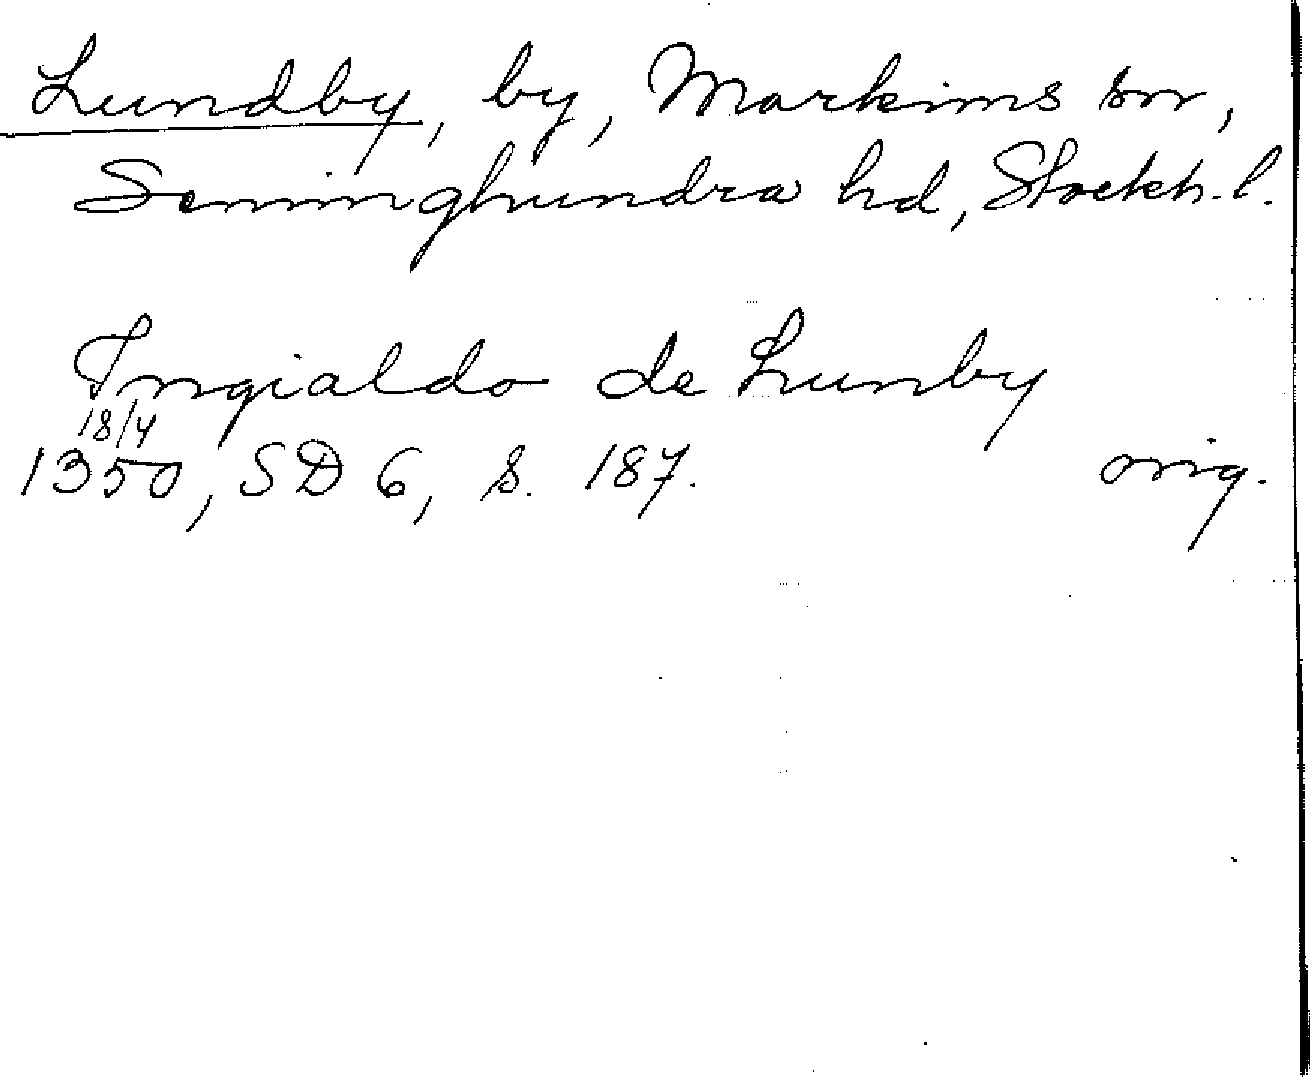 Lundby, by, Markims sn,
Seminghundra hd, Stockh. l.
Ingialdo de Lunby
18/4
1350, SD 6, s. 187. orig.